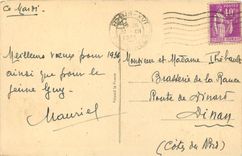 Ce Mardi.
Meilleurs vœux pour 1936
ainsi que pour le
jeune Guy
Mauriel
Monsieur et Madame Thébault
Brasserie de la Rance
Route de Dinard
Dinan
(Côtes du Nord)